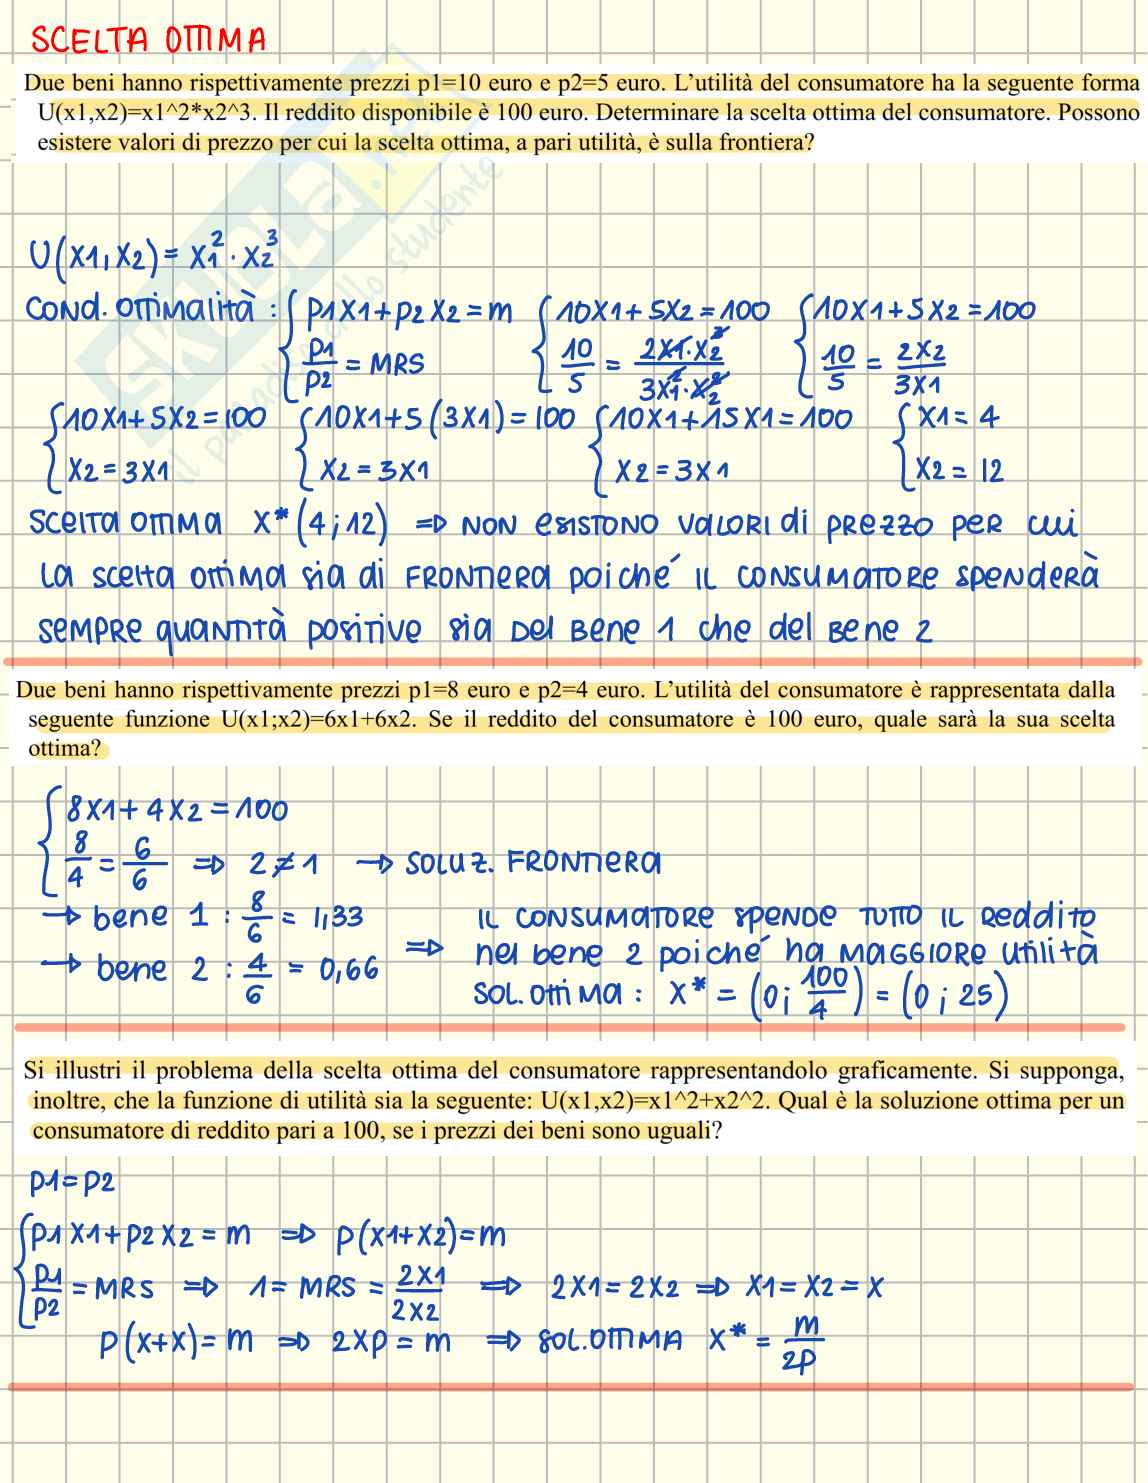 SCELTA OTTIMA
Due beni hanno rispettivamente prezzi p1=10 euro e p2=5 euro. L'utilità del consumatore ha la seguente forma
U(x1,x2)=x1^2*x2^3. Il reddito disponibile è 100 euro. Determinare la scelta ottima del consumatore. Possono
esistere valori di prezzo per cui la scelta ottima, a pari utilità, è sulla frontiera?
U(X1,X2) = X1² · X2³
COND. OTTIMALITÀ : { P1X1+P2X2=m { 10X1+5X2=100 { 10X1+5X2=100
P1/P2 = MRS 10/5 = 2X1·X2³/3X1²·X2² 10/5 = 2X2/3X1
{ 10X1+5X2=100 { 10X1+5(3X1)=100 { 10X1+15X1=100 { X1=4
X2=3X1 X2=3X1 X2=3X1 X2=12
SCELTA OTTIMA X*(4;12) => NON ESISTONO VALORI di PREZZO PER CUI
LA SCELTA OTTIMA SIA di FRONTIERA POICHÉ IL CONSUMATORE SPENDERÀ
SEMPRE QUANTITÀ POSITIVE SIA DEL BENE 1 CHE DEL BENE 2
Due beni hanno rispettivamente prezzi p1=8 euro e p2=4 euro. L'utilità del consumatore è rappresentata dalla
seguente funzione U(x1;x2)=6x1+6x2. Se il reddito del consumatore è 100 euro, quale sarà la sua scelta
ottima?
{ 8X1+4X2=100
8/4 = 6/6 => 2≠1 → SOLUZ. FRONTIERA
→ bene 1 : 8/6 = 1,33 IL CONSUMATORE SPENDE TUTTO IL REDDITO
→ bene 2 : 4/6 = 0,66 => nel bene 2 poiché ha MAGGIORE UTILITÀ
SOL. OTTIMA : X* = (0 ; 100/4) = (0 ; 25)
Si illustri il problema della scelta ottima del consumatore rappresentandolo graficamente. Si supponga,
inoltre, che la funzione di utilità sia la seguente: U(x1,x2)=x1^2+x2^2. Qual è la soluzione ottima per un
consumatore di reddito pari a 100, se i prezzi dei beni sono uguali?
P1=P2
{ P1X1+P2X2=m => P(X1+X2)=m
P1/P2 = MRS => 1 = MRS = 2X1/2X2 => 2X1=2X2 => X1=X2=X
P(X+X)=m => 2XP=m => SOL.OTTIMA X* = m/2P
SKUOLA.net
il paradiso dello studente